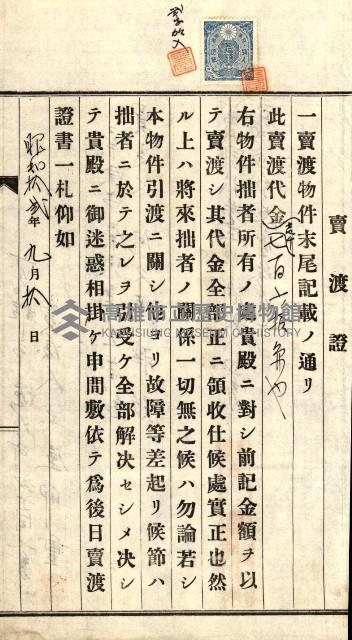 貳字加入
賣渡證
一賣渡物件末尾記載ノ通リ
此賣渡代金壹千七百六拾
右物件拙者所有ノ處貴殿ニ對シ前記金額ヲ以
テ賣渡シ其代金全部正ニ領收仕候處實正也然
ル上ハ將來拙者ノ關係一切無之候ハ勿論若シ
本物件引渡ニ關シ他ヨリ故障等差起リ候節ハ
拙者ニ於テ之レヲ引受ケ全部解决セシメ决シ
テ貴殿ニ御迷惑相掛ケ申間敷依テ爲後日賣渡
證書一札仰如
昭和拾貳年九月拾日
高雄市立歷史博物館
KAOHSIUNG MUSEUM OF HISTORY